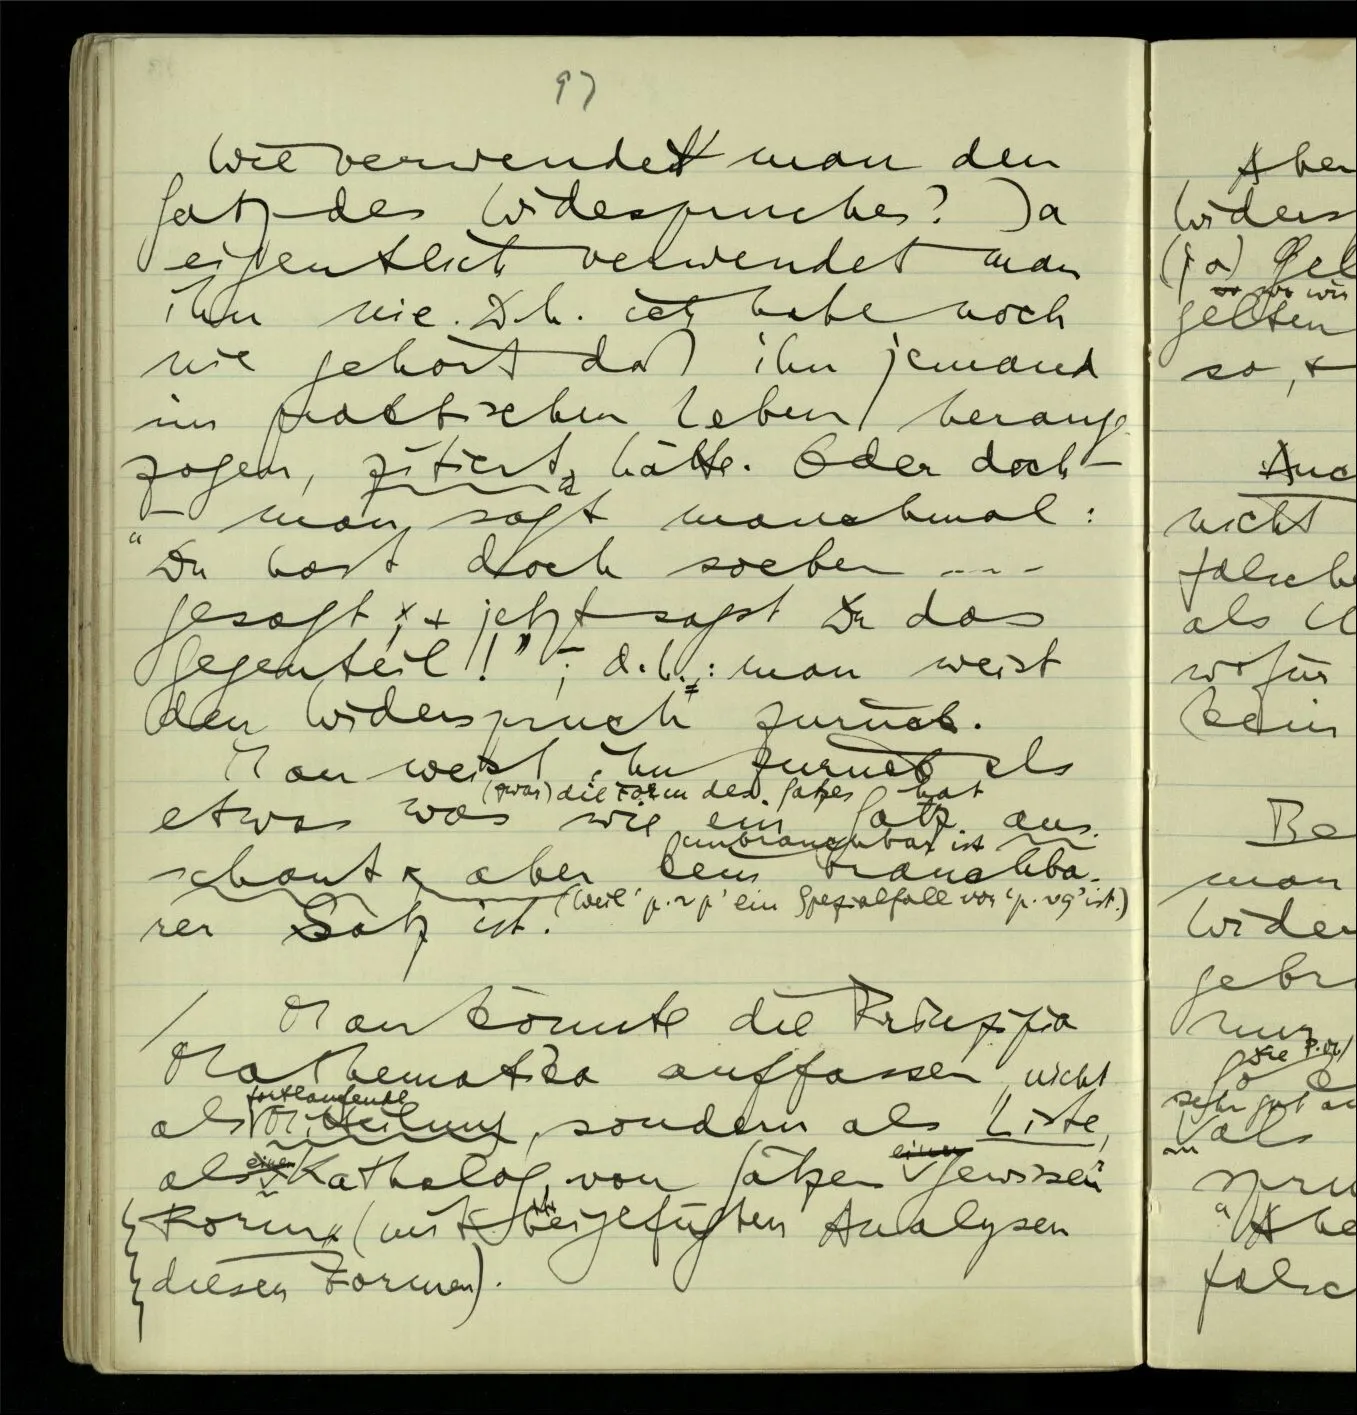 97
Wie verwendet man den
Satz des Widerspruches? Ja
eigentlich verwendet man
ihn nie. D.h. ich habe noch
nie gehört daß ihn jemand
im praktischen Leben herange-
zogen, zitiert, hätte. Oder doch –
– man sagt manchmal:
"Du hast doch soeben ----
gesagt; + jetzt sagst Du das
Gegenteil!"; d.h.: man weist
den Widerspruch zurück.
Man weist ihn zurück als
(zwar) die Form des Satzes hat
etwas was wie ein Satz aus-
unbrauchbar ist
schaut, aber kein brauchba-
(weil 'p.~p' ein Spezialfall von 'p.~q' ist.)
rer Satz ist.
/ Man könnte die Prinzipia
Mathematica auffassen, nicht
fortlaufende
als Mitteilung, sondern als Liste,
einen einer
als Katholog, von Sätzen gewissen
Form, (mit beigefügten Analysen
dieser Formen).
Aber
Widers
(ja) Gel
wo wir
gelten
so, +
Auc
nicht
falsche
als
wofür
kein
Be
man
Wider
gebr
nur
die
sehr gut
als
spru
"Abe
falsc